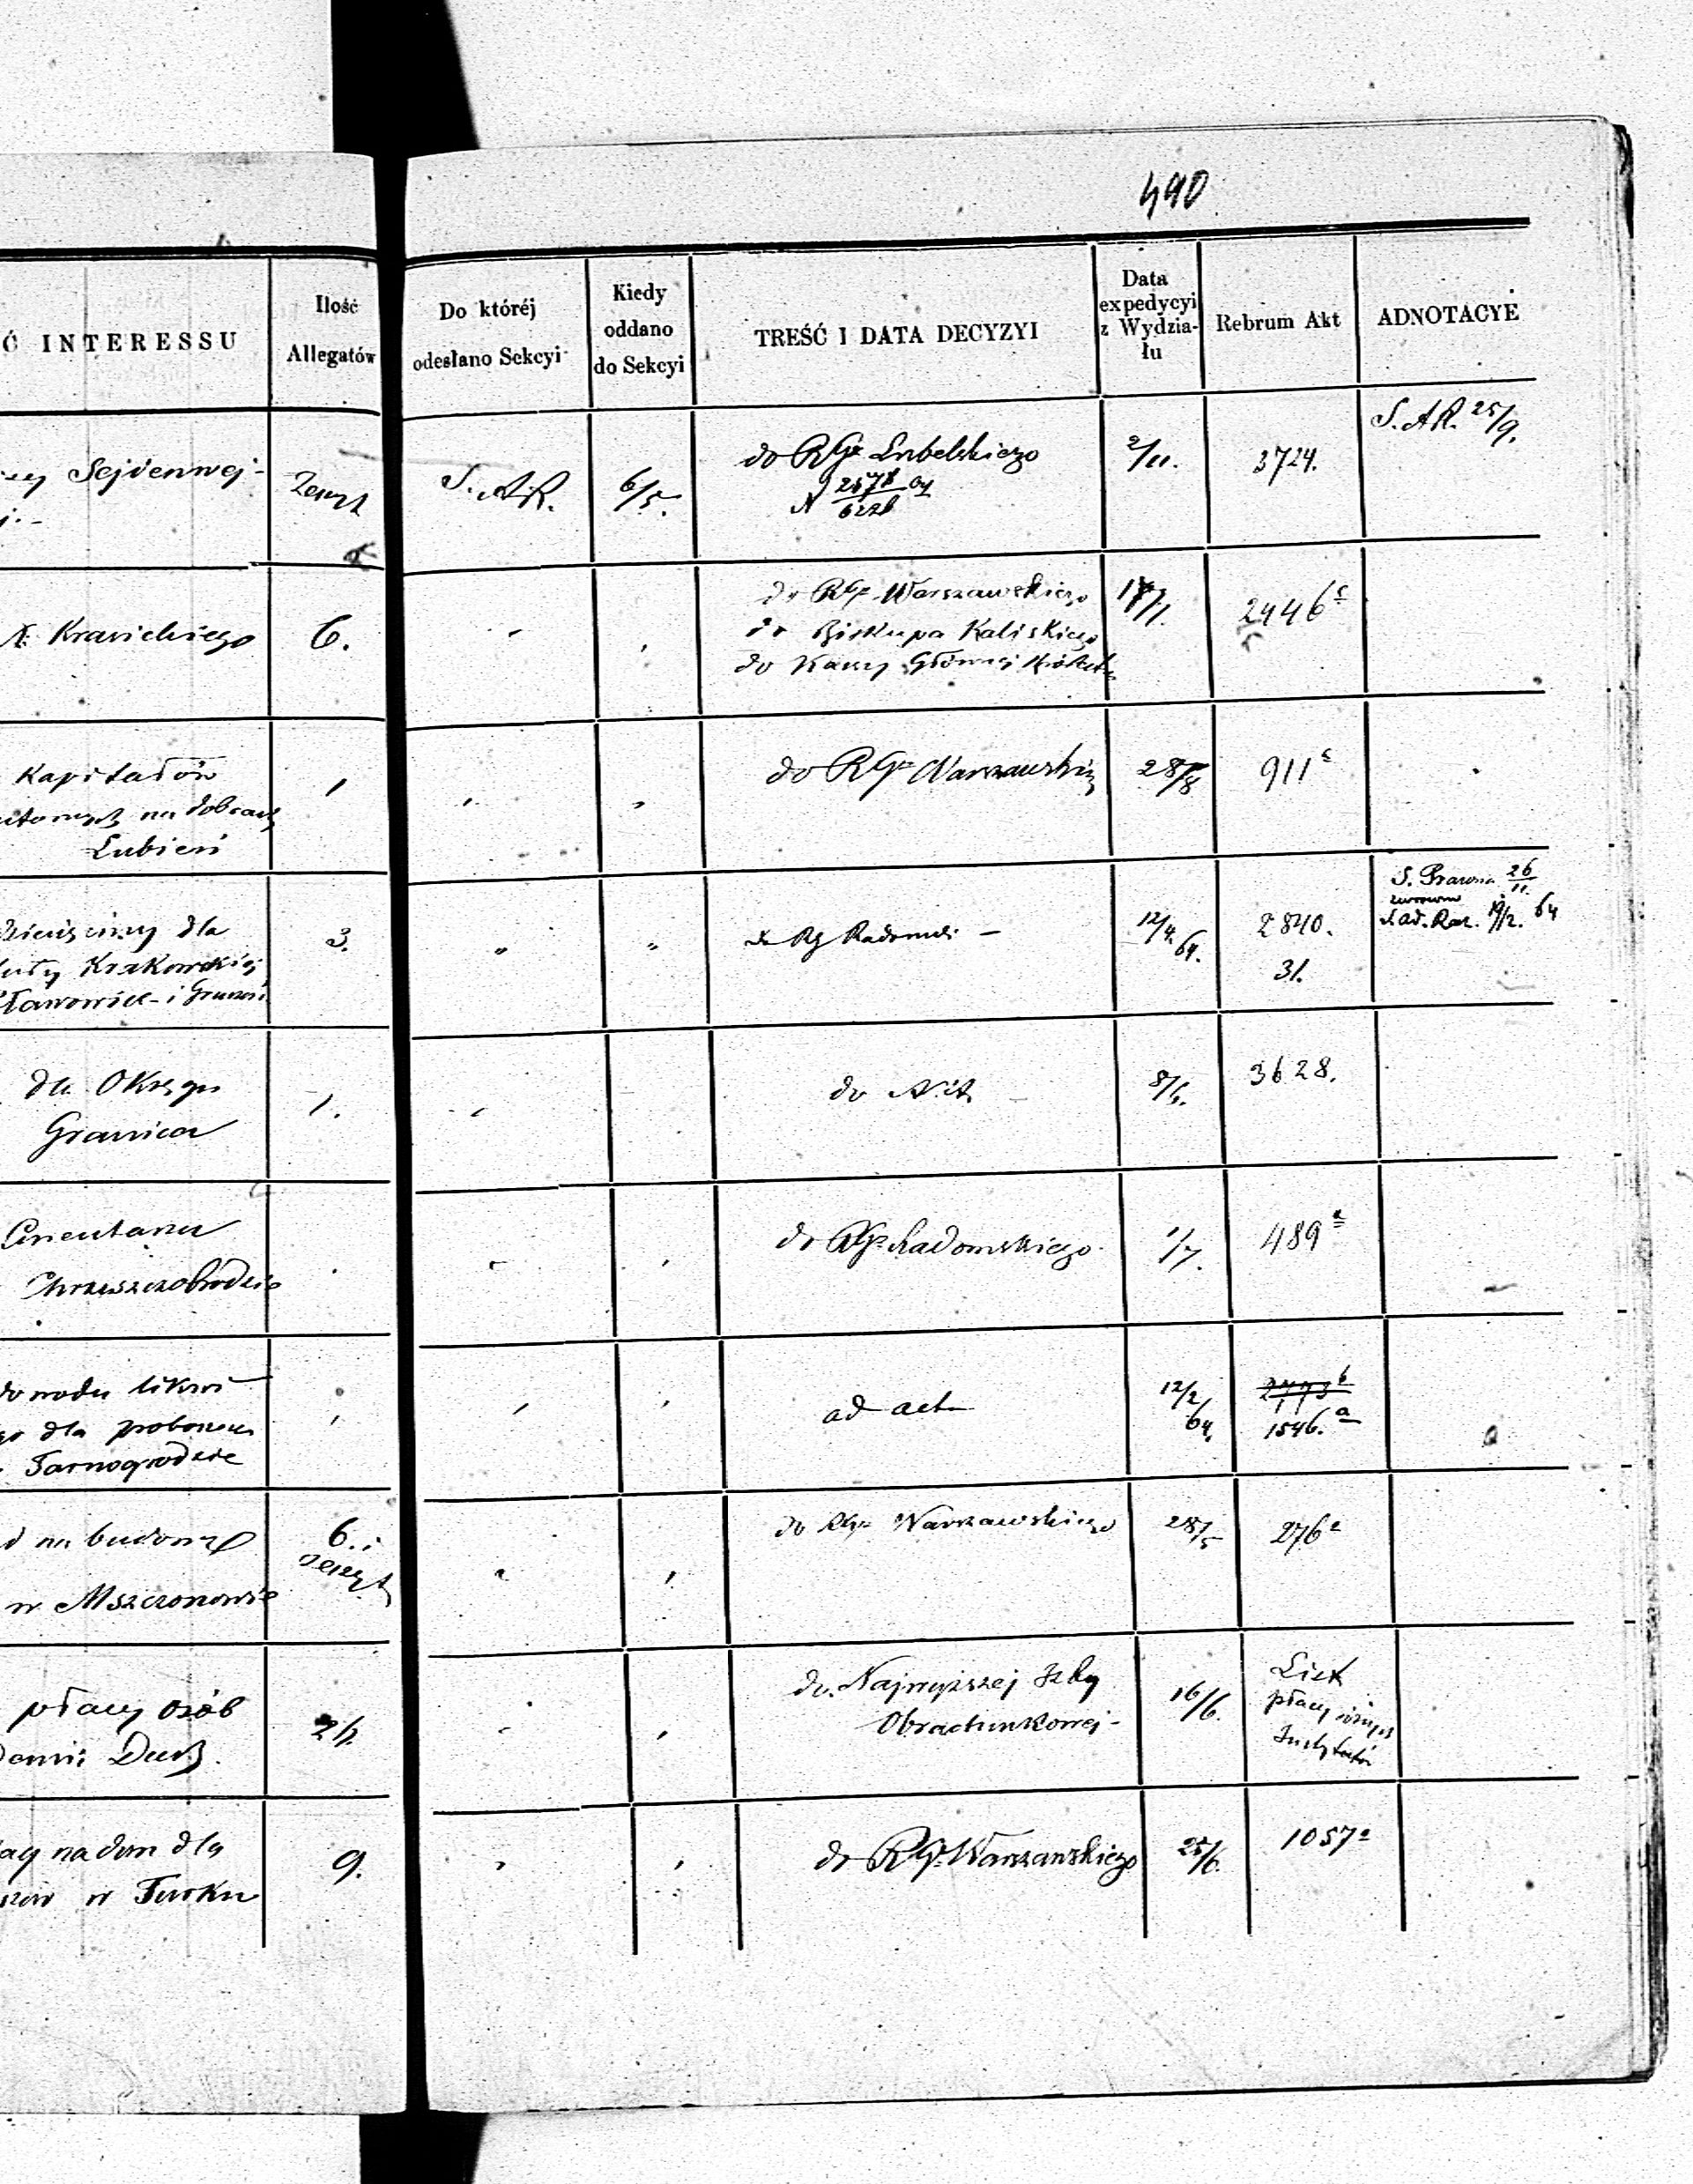 490
Ć INTERESSU
Ilość
Allegatów
Do któréj
odesłano Sekcyi
Kiedy
oddano
do Sekcyi
TREŚĆ I DATA DECYZYI
Data
expedycyi
z Wydzia-
łu
Rebrum Akt
ADNOTACYE
Sejdenwej-
Zeszyt
S. A. R.
6/5.
do RGu Lubelskiego
N
2/11.
3724.
S. AR. 25/9.
X. Krasickiego
6.
do RGu Warszawskiego
do Biskupa Kaliskiego
do Kassy Głównej Królestw
2446 c
Kapitałów
na dobrach
Łubień
1
do RGu Warszawskieg
28/8
911 c
dla
Krakowskiej
3.
do RG Radomsk -
12/4. 64.
2840.
31.
S. Prawna 26/11.
S. Ad. Rac. 19/2. 64
dla Okręgu
Granica
1.
do N. I. A.
8/6.
3628.
Cmentarza
Chrzeszczobrodzie
do RGu Radomskiego
1/7.
489 a
dowodu likwi
go dla proboszcza
Tarnogrodzie
ad acta
12/2 64.
2773 b
1546. a
d na budowę
w Mszczonowie
6. i
zeszyt
do RGu Warszawskiego
28/5
276 a
płacy osób
demii Duch.
21.
do Najwyższej Izby
Obrachunkowej -
16/6.
List
płacy różnych
Instytutów
na dom dla
w Turku
9.
do RGu Warszawskiego
25/6.
1057 a